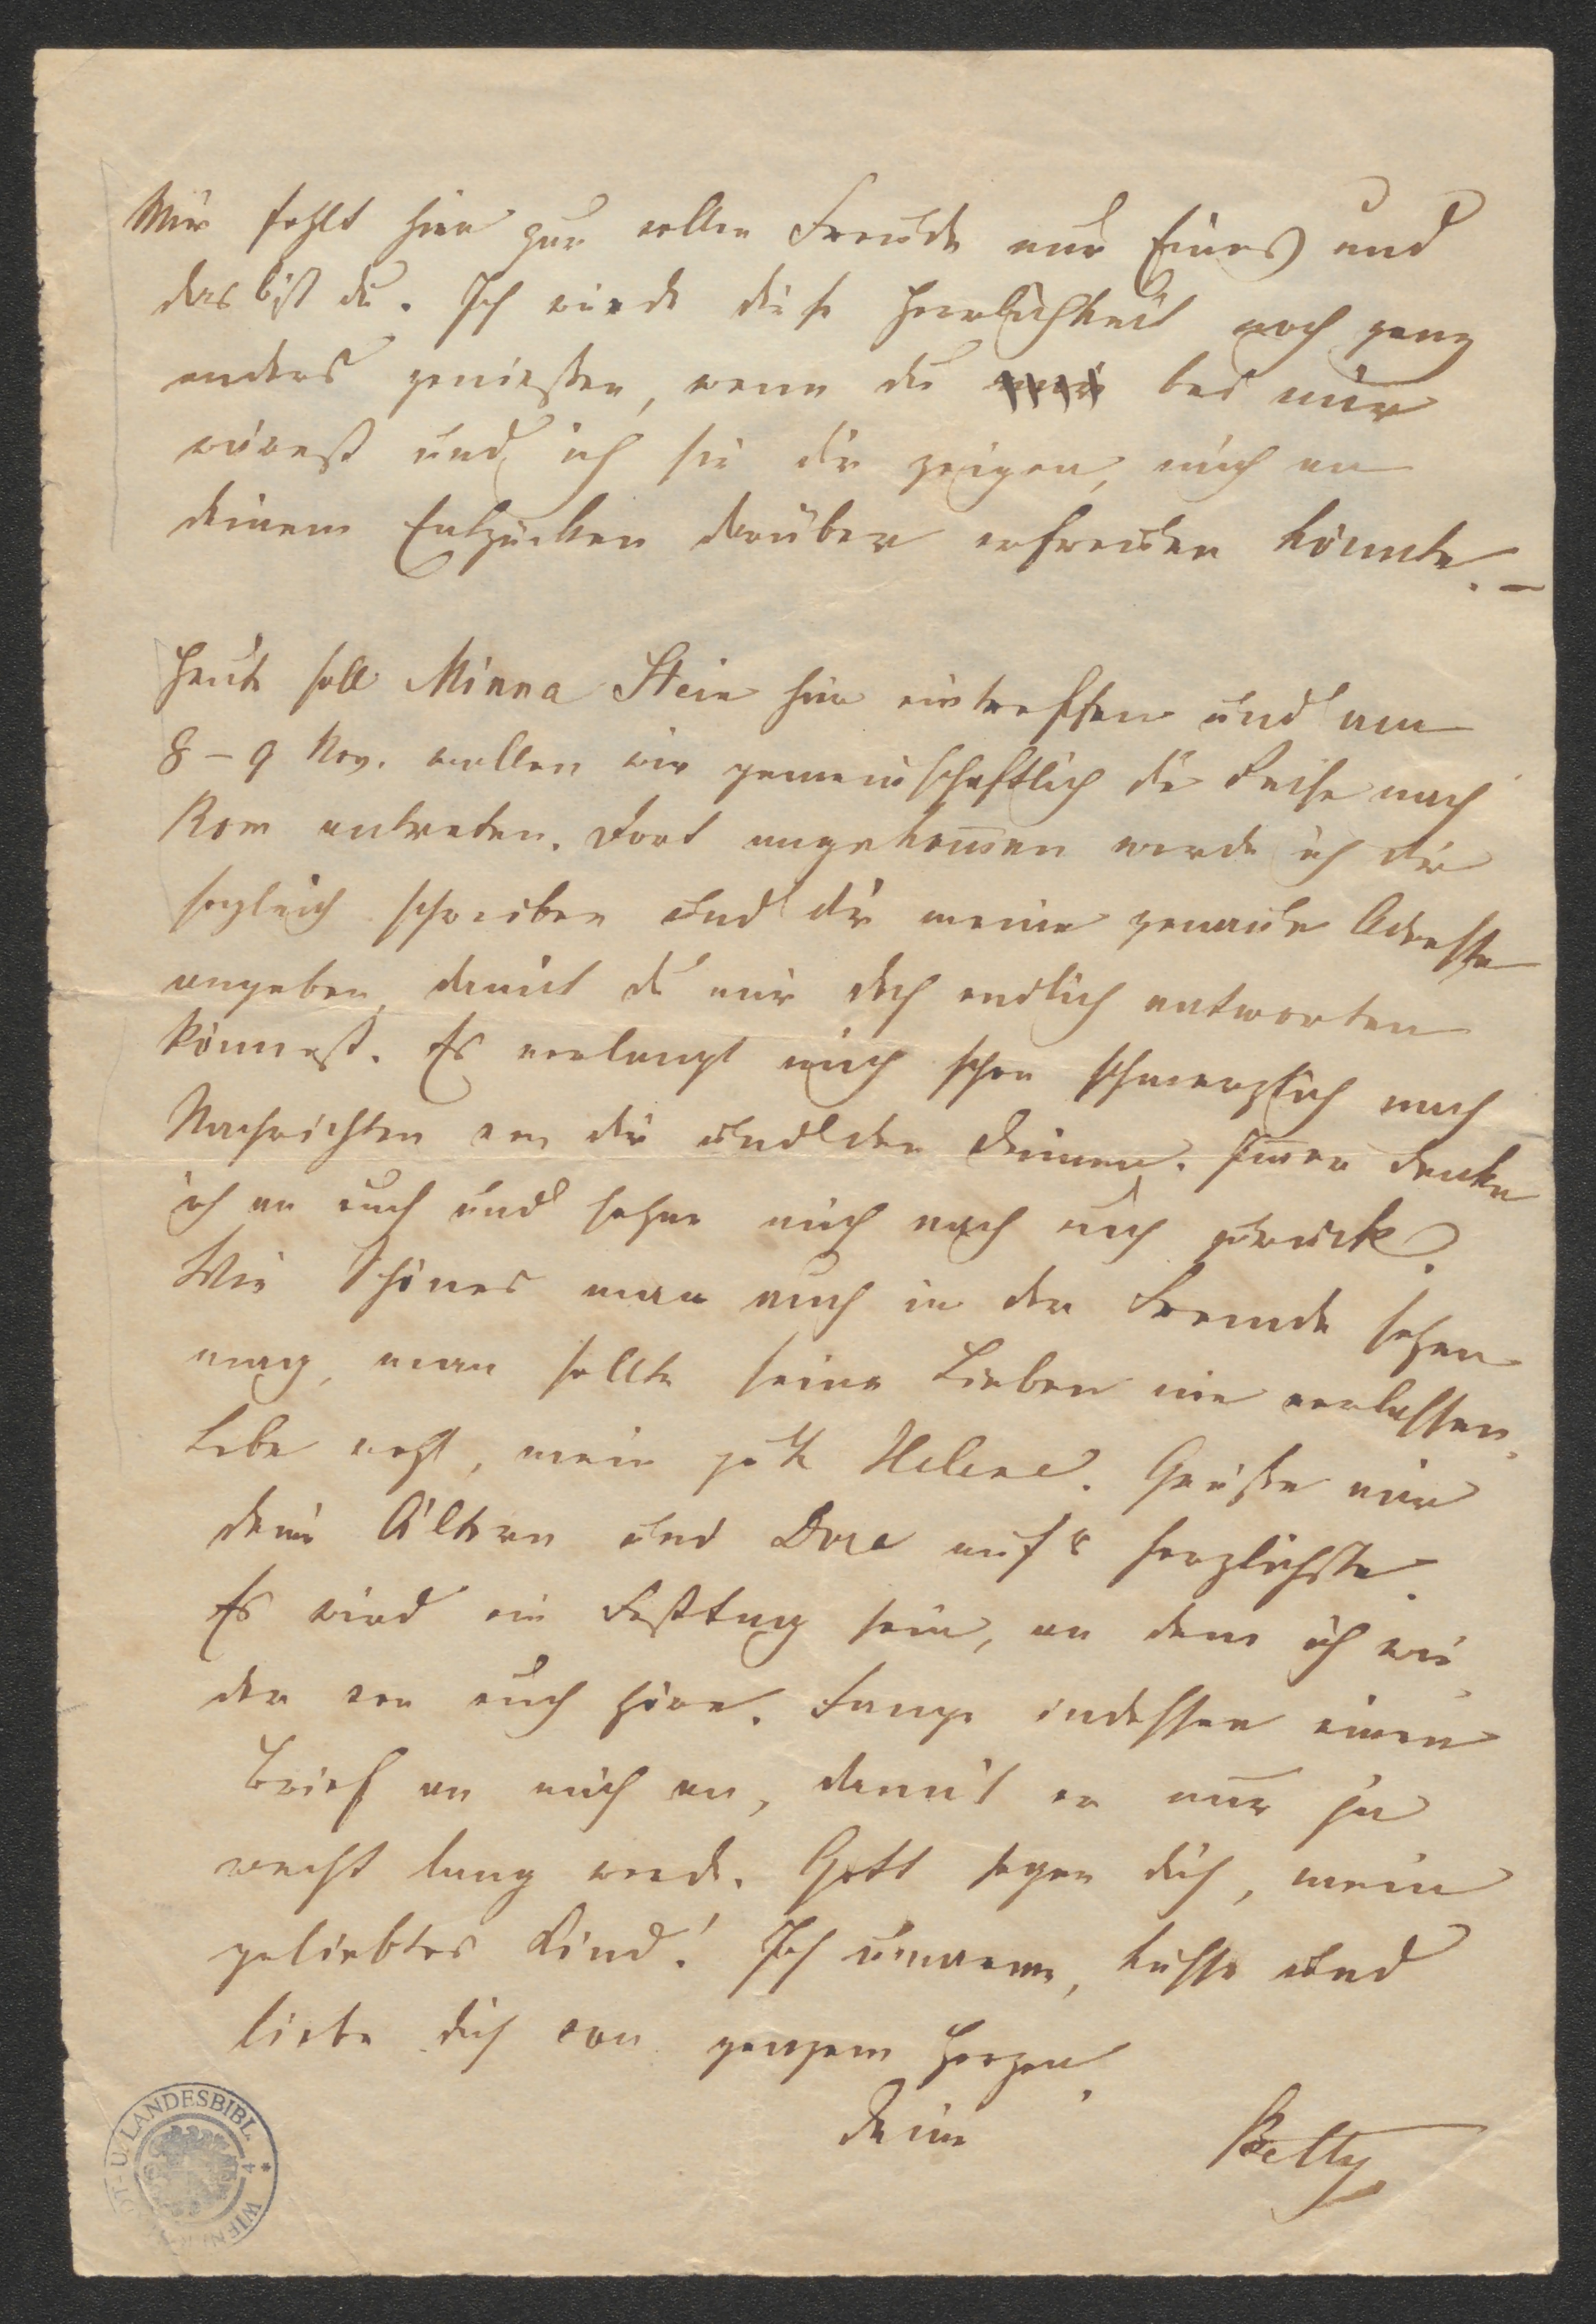 Mir fehlt hier zur vollen Freude nur Eines und
das bist du. Ich würde diese Herrlichkeit noch ganz
anders genießen, wenn du bei mir
wärest und ich sie dir zeigen, mich an
deinem Entzücken darüber erfreuen könnte. –
Heute soll Minna Stein hier eintreffen und am
8 – 9 Nov. wollen wir gemeinschaftlich die Reise nach
Rom antreten. Dort angekom̅en werde ich dir
sogleich schreiben und dir meine genaue Adresse
angeben, damit du mir doch endlich antworten
könnest. Es verlangt mich schon schmerzlich nach
Nachrichten von dir und den Deinen. Im̅er denke
ich an euch und sehne mich nach euch zurück.
Wie Schönes man auch in der Fremde sehen
mag, man sollte seine Lieben nie verlassen.
Lebe wohl, mein gute Helene. Grüße mir
deine Ältern und Dora auf's herzlichste.
Es wird ein Festtag sein, an dem ich wie
der von euch höre. Fange indessen einen
Brief an mich an, damit er nur ja
recht lang werde. Gott segne dich, mein
geliebtes Kind! Ich umarme, küsse und
liebe dich von ganzem Herzen.
Deine Betty
LANDESBIBL. * WIEN